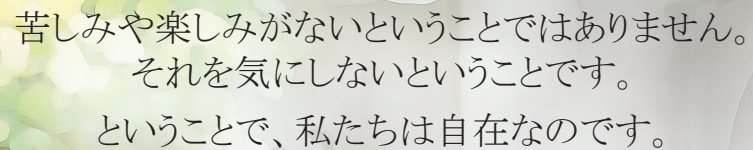 苦しみや楽しみがないということではありません。
それを気にしないということです。
ということで、私たちは自在なのです。